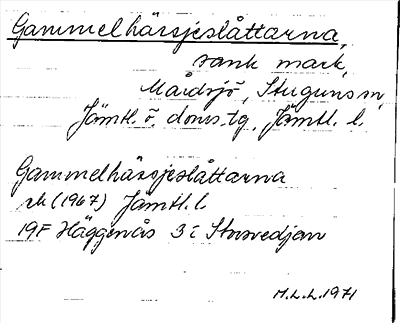 Gammelhärsjeslåttarna,
sank mark,
Mårdsjö, Stuguns sn,
Jämtl. ö. doms.tg, Jämtl. l.
Gammelhärsjeslåttarna
ek (1967) Jämtl. l
19F Häggenås 3 i Storsvedjan
M.L.L. 1971